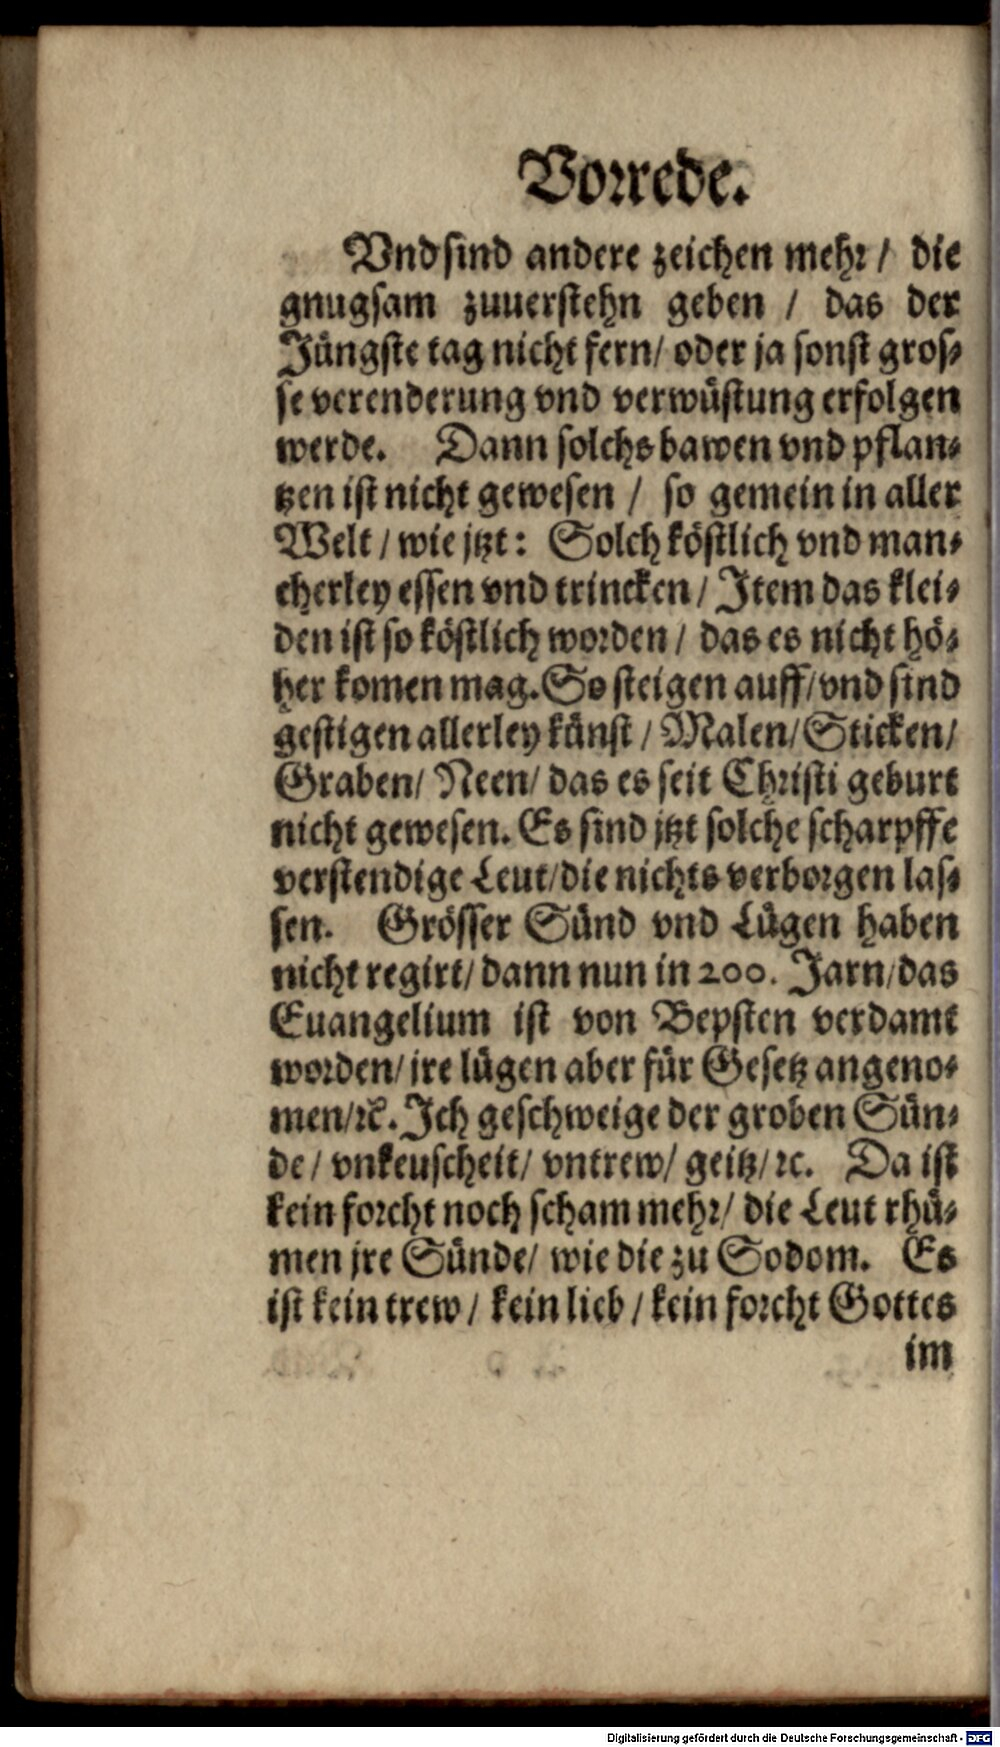 Vorrede.
Vnd sind andere zeichen mehr / die
gnugsam zuuerstehn geben / das der
Jüngste tag nicht fern / oder ja sonst gros-
se verenderung vnd verwüstung erfolgen
werde. Dann solchs bawen vnd pflan-
tzen ist nicht gewesen / so gemein in aller
Welt / wie jtzt: Solch köstlich vnd man-
cherley essen vnd trincken / Item das klei-
den ist so köstlich worden / das es nicht hö-
her komen mag. So steigen auff / vnd sind
gestigen allerley künst / Malen / Sticken /
Graben / Neen / das es seit Christi geburt
nicht gewesen. Es sind jtzt solche scharpffe
verstendige Leut / die nichts verborgen las-
sen. Grösser Sünd vnd Lügen haben
nicht regirt / dann nun in 200. Jarn / das
Euangelium ist von Bepsten verdamt
worden / jre lügen aber für Gesetz angeno-
men / ꝛc̄. Ich geschweige der groben Sün-
de / vnkeuscheit / vntrew / geitz / ꝛc. Da ist
kein forcht noch scham mehr / die Leut rhü-
men jre Sünde / wie die zu Sodom. Es
ist kein trew / kein lieb / kein forcht Gottes
im
Digitalisierung gefördert durch die Deutsche Forschungsgemeinschaft - DFG